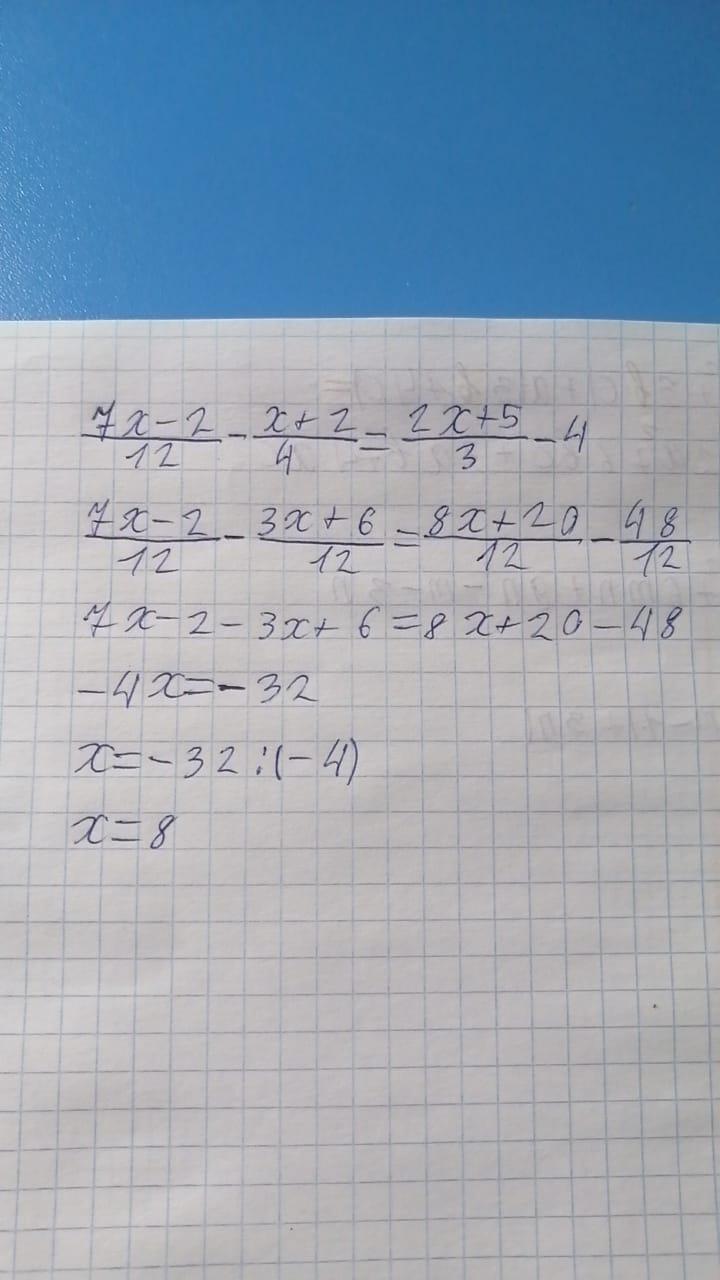 (7x-2)/12 - (x+2)/4 = (2x+5)/3 - 4
(7x-2)/12 - (3x+6)/12 = (8x+20)/12 - 48/12
7x-2-3x+6=8x+20-48
-4x=-32
x=-32:(-4)
x=8